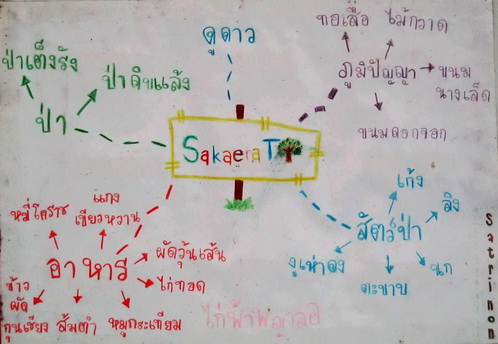 ดูดาว
ทอเสื่อ
ไม้กวาด
ภูมิปัญญา
ขนม
นางเล็ด
ขนมดอกจอก
ป่าเต็งรัง
ป่าดิบแล้ง
ป่า
SakaeraT
เก้ง
ลิง
สัตว์ป่า
งูเห่าดง
ตะขาบ
นก
หมี่โคราช
แกง
เขียวหวาน
อาหาร
ผัดวุ้นเส้น
ไก่ทอด
ข้าว
ผัด
กุนเชียง
ส้มตำ
หมูกระเทียม
ไก่ฟ้าพญาลอ
Satrinon